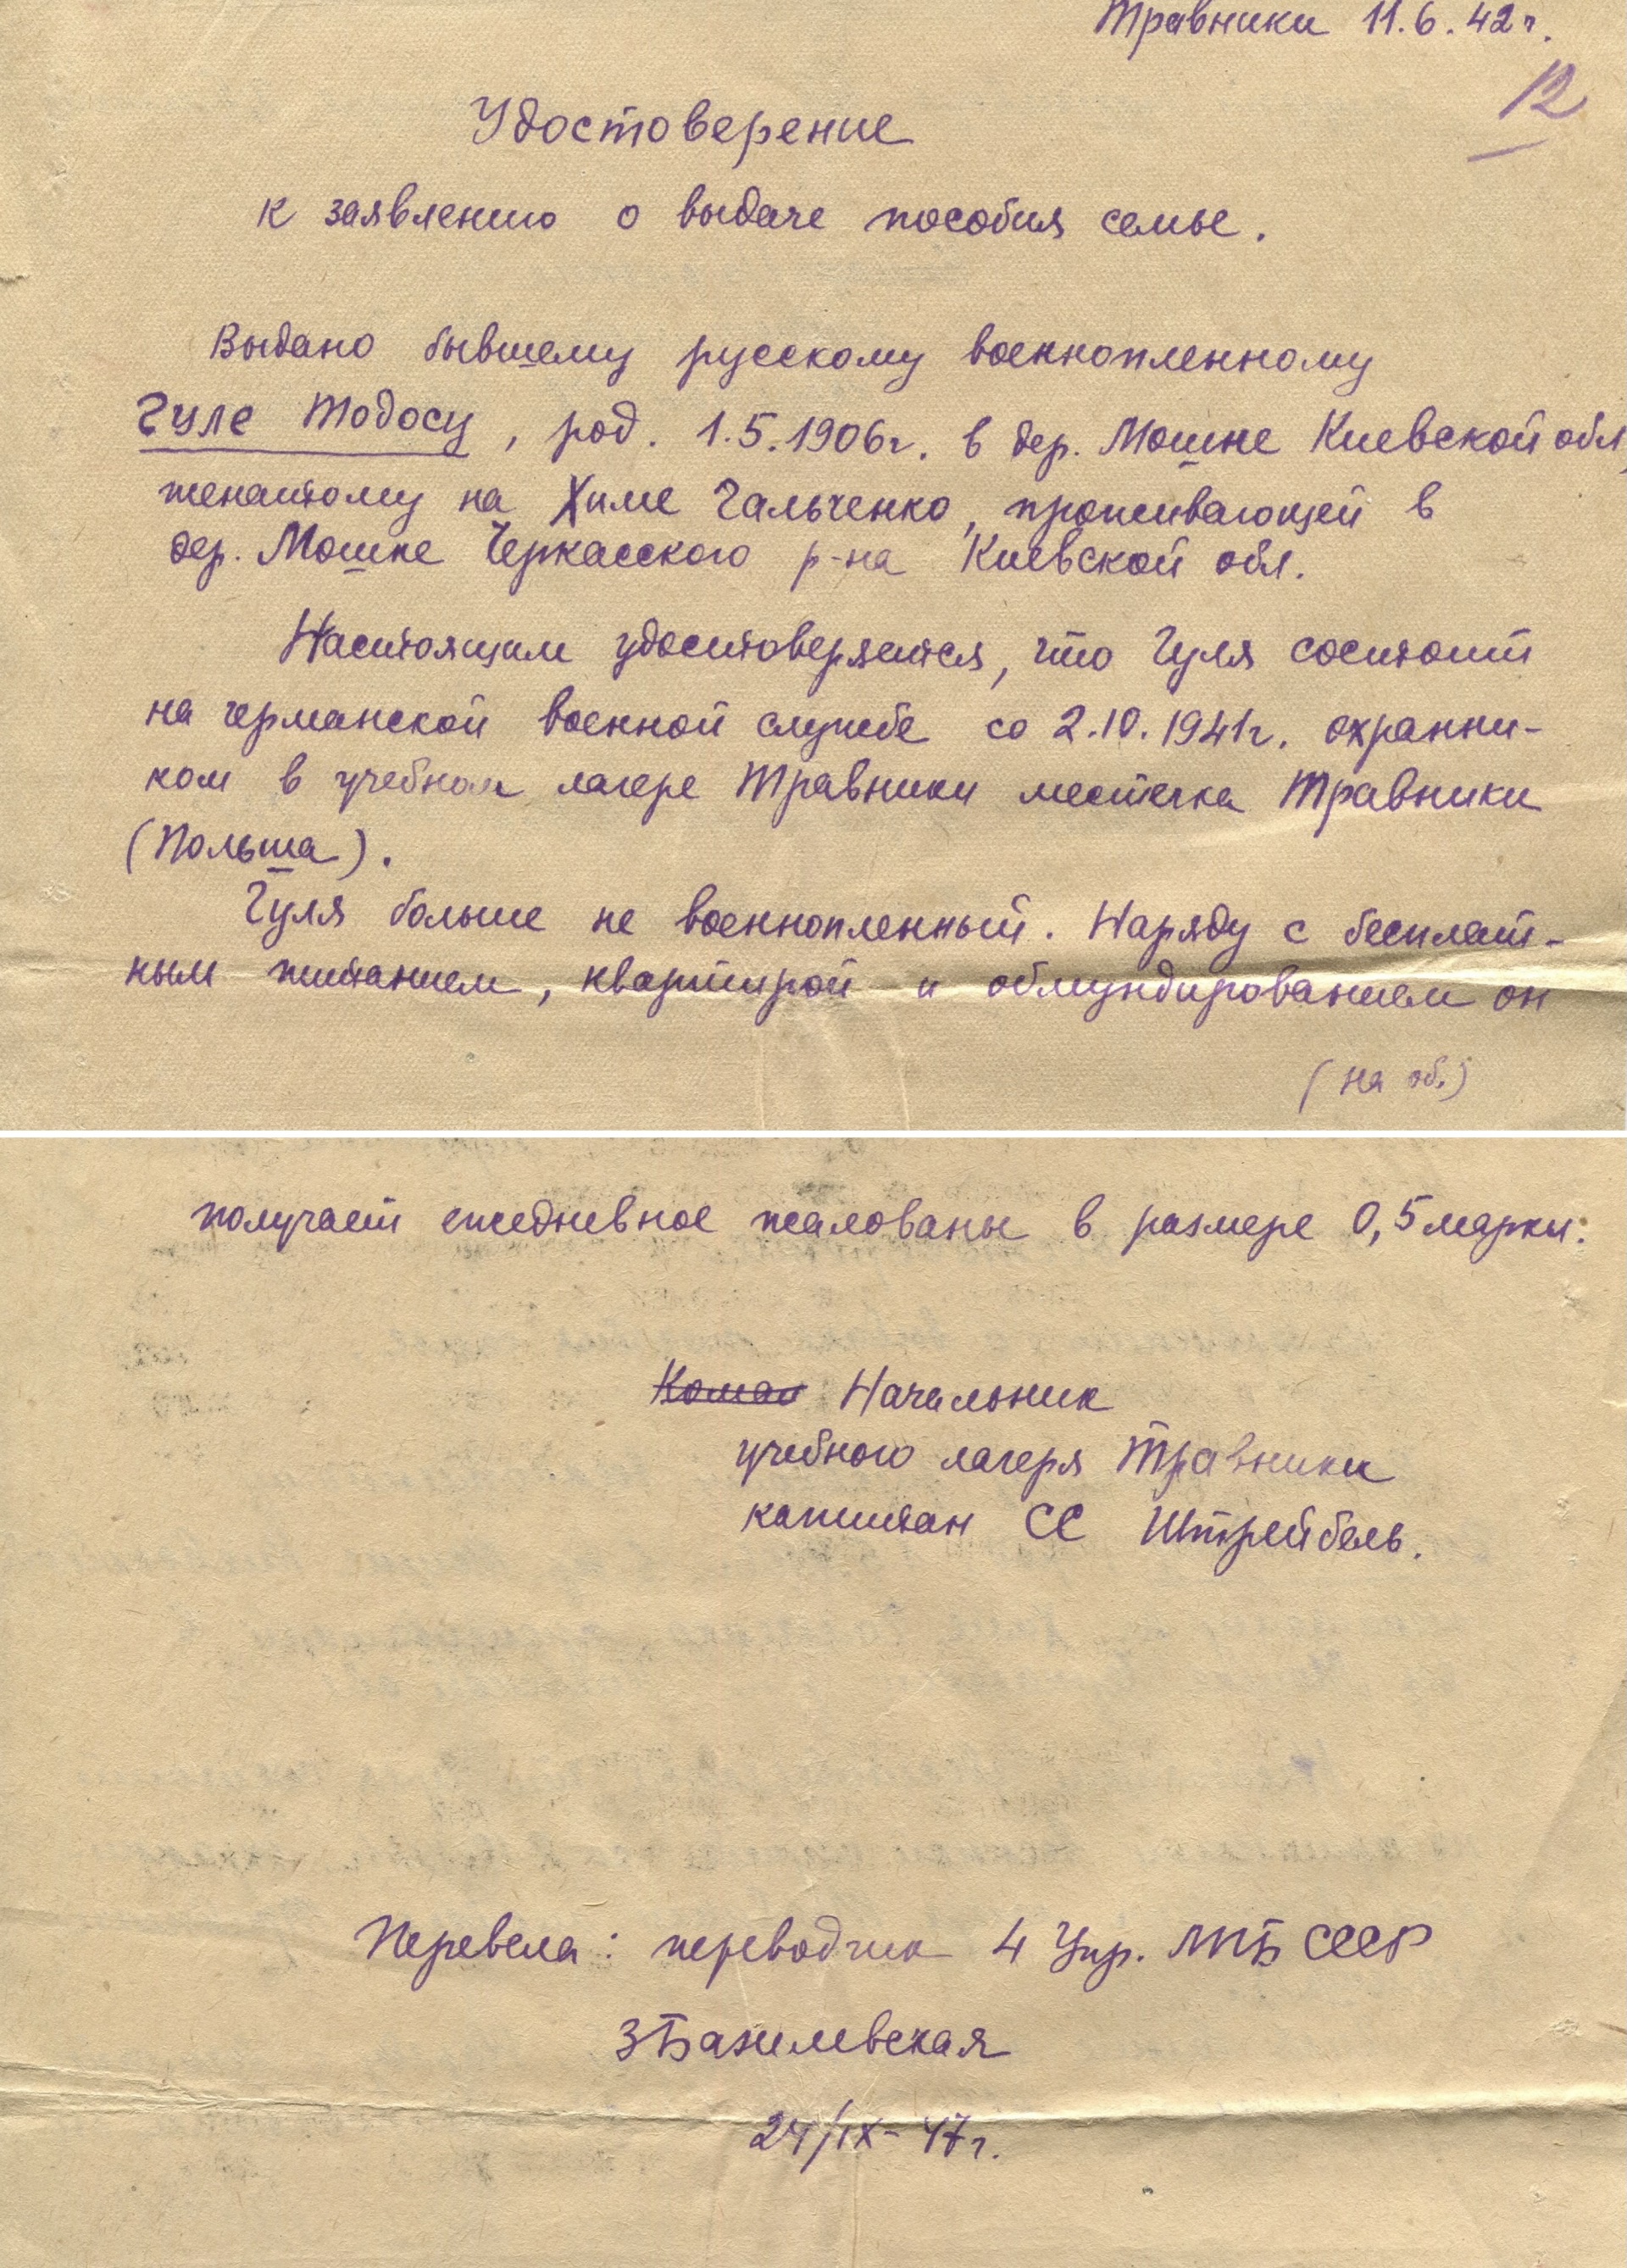 Травники 11.6.42 г.
12
Удостоверение
к заявлению о выдаче пособия семье.
Выдано бывшему русскому военнопленному
Гуле Тодосу, род. 1.5.1906 г. в дер. Мошне Киевской обл,
женатому на Химе Гальченко, проживающей в
дер. Мошне Черкасского р-на Киевской обл.
Настоящим удостоверяется, что Гуля состоит
на германской военной службе со 2.10.1941 г. охранни-
ком в учебном лагере Травники местечка Травники
(Польша).
Гуля больше не военнопленный. Наряду с бесплат-
ным питанием, квартирой и обмундированием он
(на об.)
получает ежедневное жалованье в размере 0,5 марки.
Коман Начальник
учебного лагеря Травники
капитан СС Штрейбель.
Перевела: переводчик 4 Упр. МГБ СССР
ЗБазилевская
24/IX-47 г.